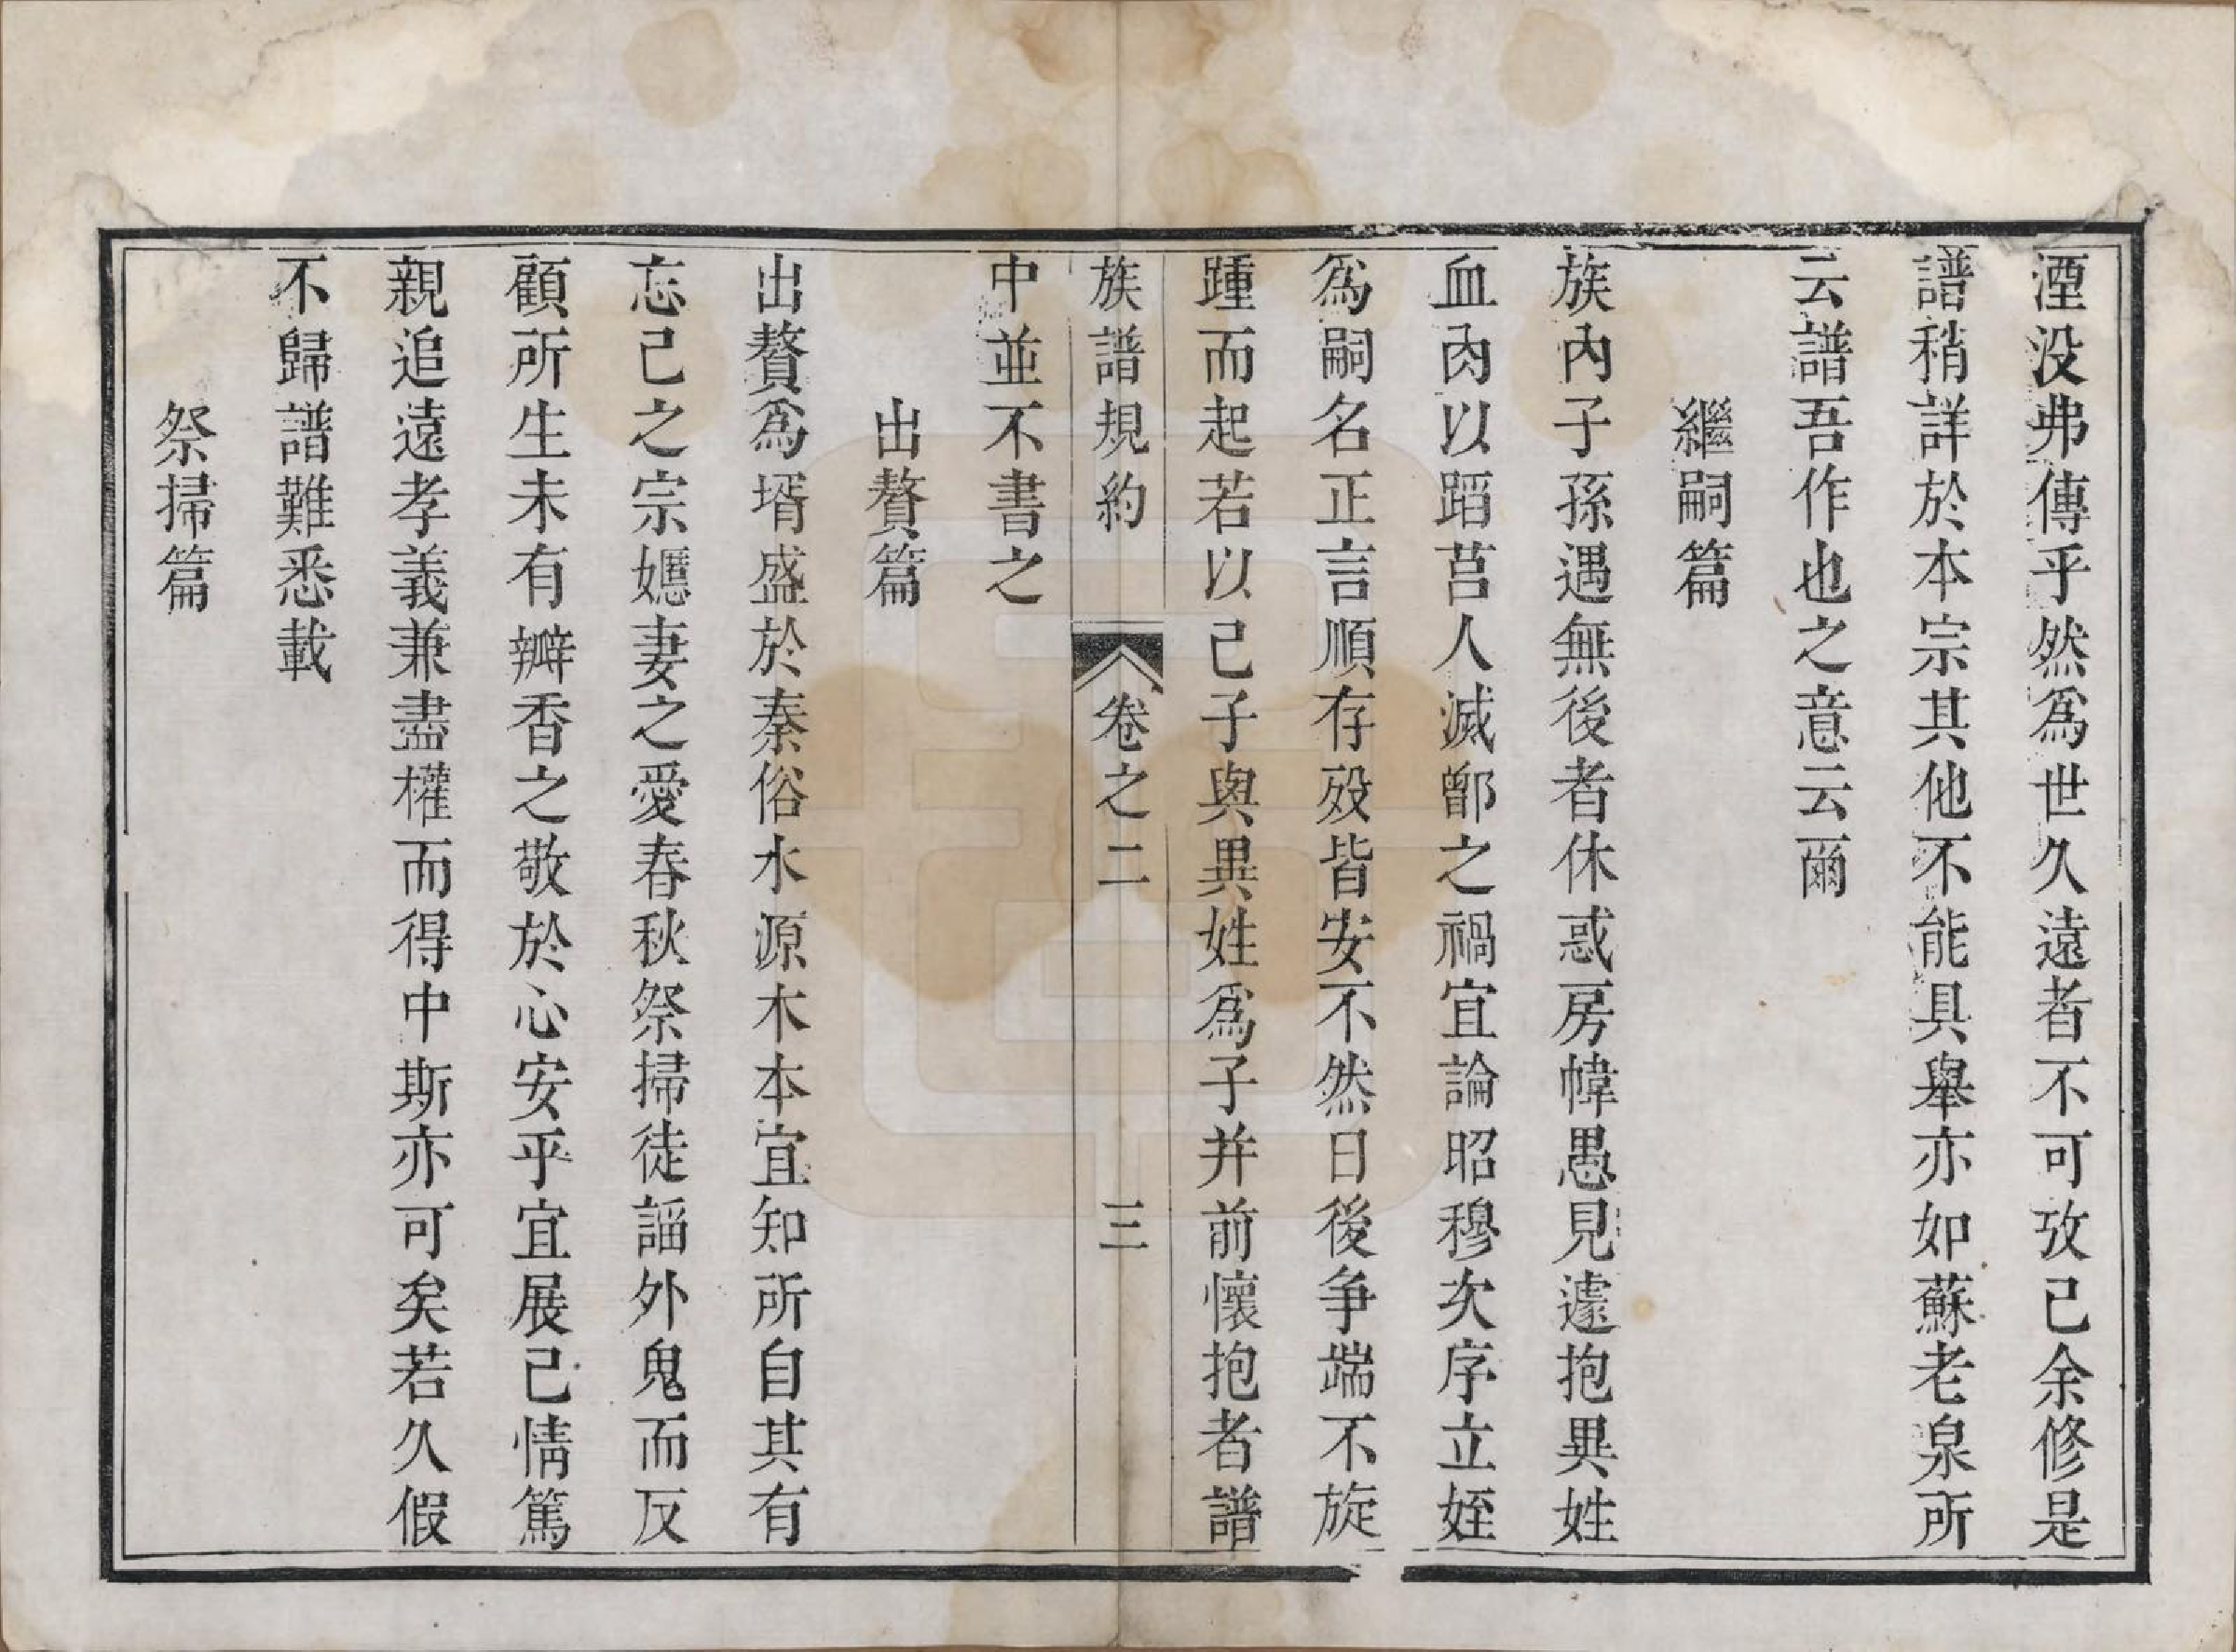 湮没弗傳乎然爲世久遠者不可攷已余修是
譜稍詳於本宗其他不能具舉亦如蘇老泉所
云譜吾作也之意云爾
繼嗣篇
族內子孫遇無後者休惑房幃愚見遽抱異姓
血肉以蹈莒人滅鄫之禍宜論昭穆次序立姪
爲嗣名正言順存殁皆安不然日後争端不旋
踵而起若以己子與異姓爲子并前懷抱者譜
族譜規約 卷之二 三
中並不書之
出贅篇
出贅爲壻盛於秦俗水源木本宜知所自其有
忘己之宗嫟妻之愛春秋祭掃徒謟外鬼而反
顧所生未有瓣香之敬於心安乎宜展己情篤
親追遠孝義兼盡權而得中斯亦可矣若久假
不歸譜難悉載
祭掃篇